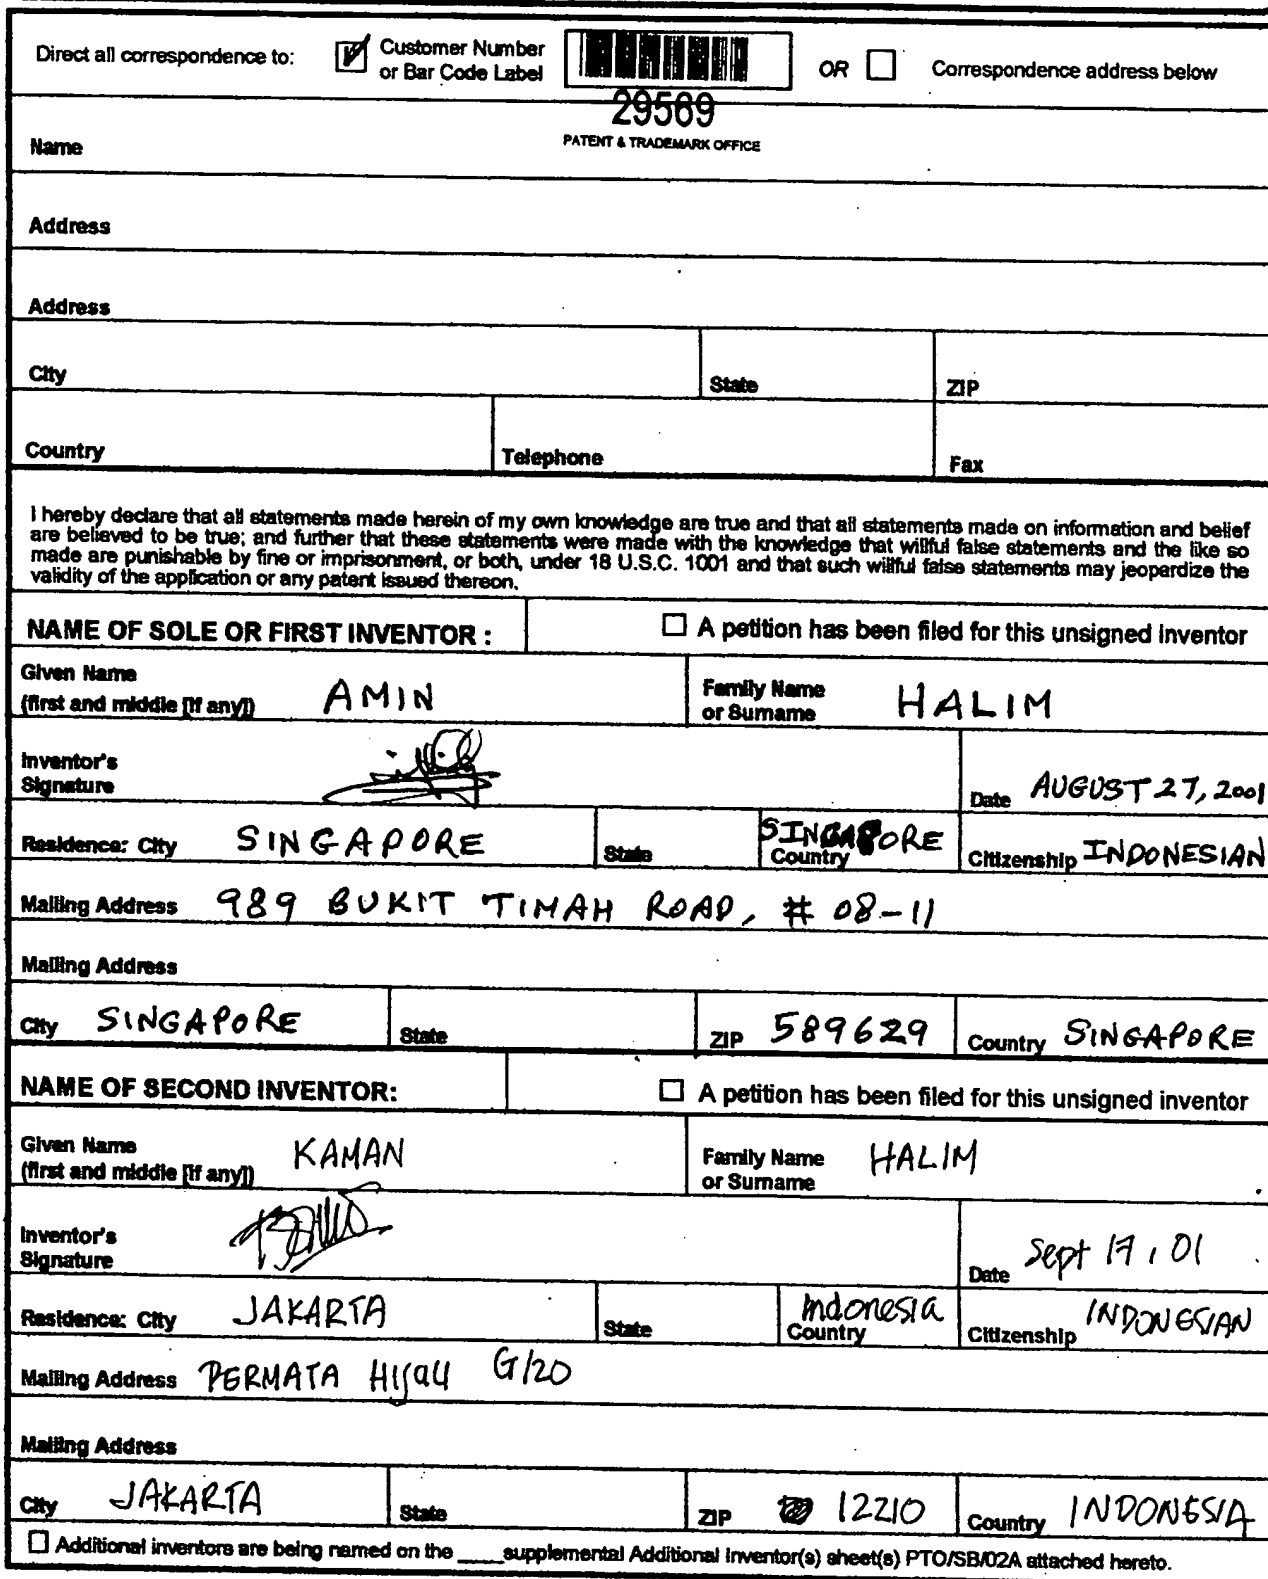 Direct all correspondence to: Customer Number or Bar Code Label OR Correspondence address below
29569
PATENT & TRADEMARK OFFICE
Name
Address
Address
City State ZIP
Country Telephone Fax
I hereby declare that all statements made herein of my own knowledge are true and that all statements made on information and belief
are believed to be true; and further that these statements were made with the knowledge that willful false statements and the like so
made are punishable by fine or imprisonment, or both, under 18 U.S.C. 1001 and that such willful false statements may jeopardize the
validity of the application or any patent issued thereon.
NAME OF SOLE OR FIRST INVENTOR : A petition has been filed for this unsigned inventor
Given Name
(first and middle [if any]) AMIN Family Name or Surname HALIM
Inventor's
Signature Date AUGUST 27, 2001
Residence: City SINGAPORE State SINGAPORE Country Citizenship INDONESIAN
Mailing Address 989 BUKIT TIMAH ROAD, # 08-11
Mailing Address
City SINGAPORE State ZIP 589629 Country SINGAPORE
NAME OF SECOND INVENTOR: A petition has been filed for this unsigned inventor
Given Name
(first and middle [if any]) KAMAN Family Name or Surname HALIM
Inventor's
Signature Date Sept 17, 01
Residence: City JAKARTA State Indonesia Country Citizenship INDONESIAN
Mailing Address PERMATA HIJAU G/20
Mailing Address
City JAKARTA State ZIP 12210 Country INDONESIA
Additional inventors are being named on the ____supplemental Additional Inventor(s) sheet(s) PTO/SB/02A attached hereto.